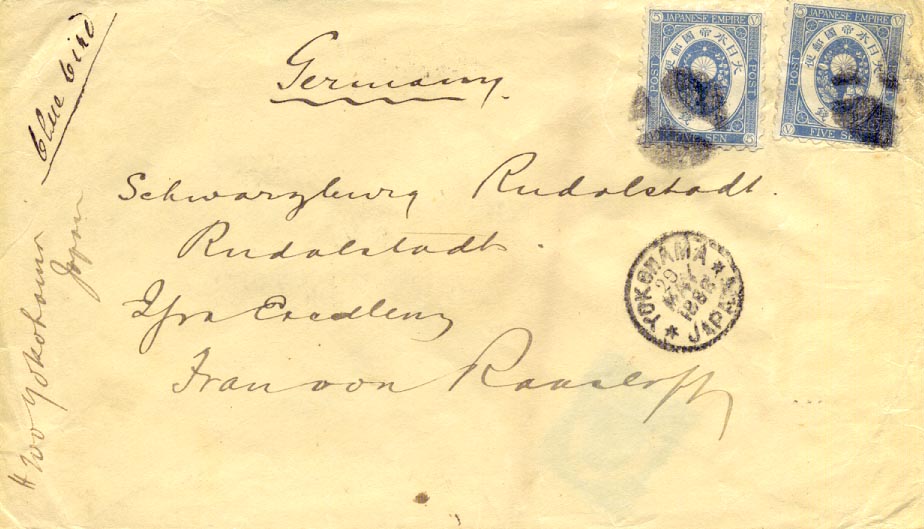 blue bird
Germany.
JAPANESE EMPIRE
大日本帝國郵便
POST
5 SEN
FIVE SEN
JAPANESE EMPIRE
大日本帝國郵便
POST
FIVE SEN
Schwarzburg Rudolstadt.
Rudolstadt.
Frau von Raasloff
YOKOHAMA
JAPAN
29
Yokohama
Japan